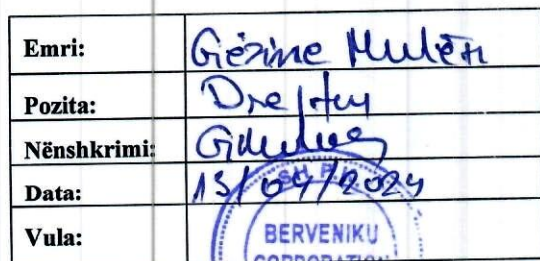 Emri: Gëzime Mulëti
Pozita: Drejtor
Nënshkrimi:
Data: 13/04/2024
Vula:
SH. P. K.
BERVENIKU
CORPORATION